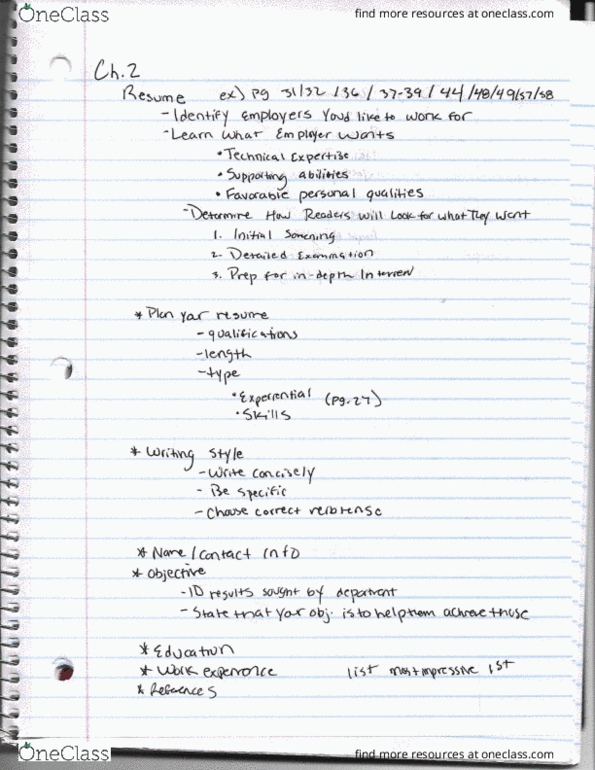 OneClass
find more resources at oneclass.com
Ch.2
Resume ex) pg 31/32 /36 / 37-39 / 44 /48/49/57/58
- Identify employers you'd like to work for
- Learn what Employer wants
• Technical Expertise
• Supporting abilities
• Favorable personal qualities
- Determine How Readers will Look for what They Want
1. Initial Screening
2. Detailed Examination
3. Prep for in-depth Interview
* Plan your resume
- qualifications
- length
- type
• Experiential (pg. 27)
• Skills
* Writing Style
- Write concisely
- Be specific
- Choose correct verb tense
* Name/Contact Info
* Objective
- ID results sought by department
- State that your obj. is to help them achieve those
* Education
* Work experience list most impressive 1st
* References
OneClass
find more resources at oneclass.com